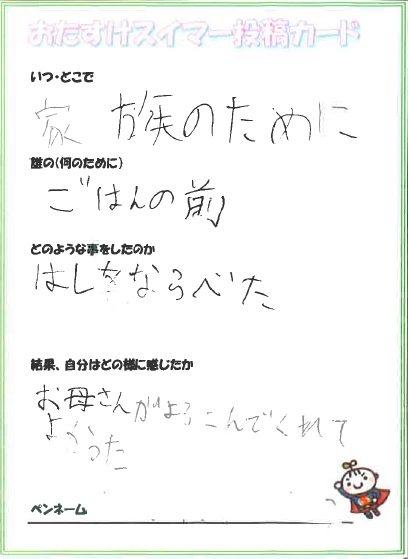 おたすけスイマー投稿カード
いつ・どこで
家族のために
誰の(何のために)
ごはんの前
どのような事をしたのか
はしをならべた
結果、自分はどの様に感じたか
お母さんがよろこんでくれて
よかった
ペンネーム